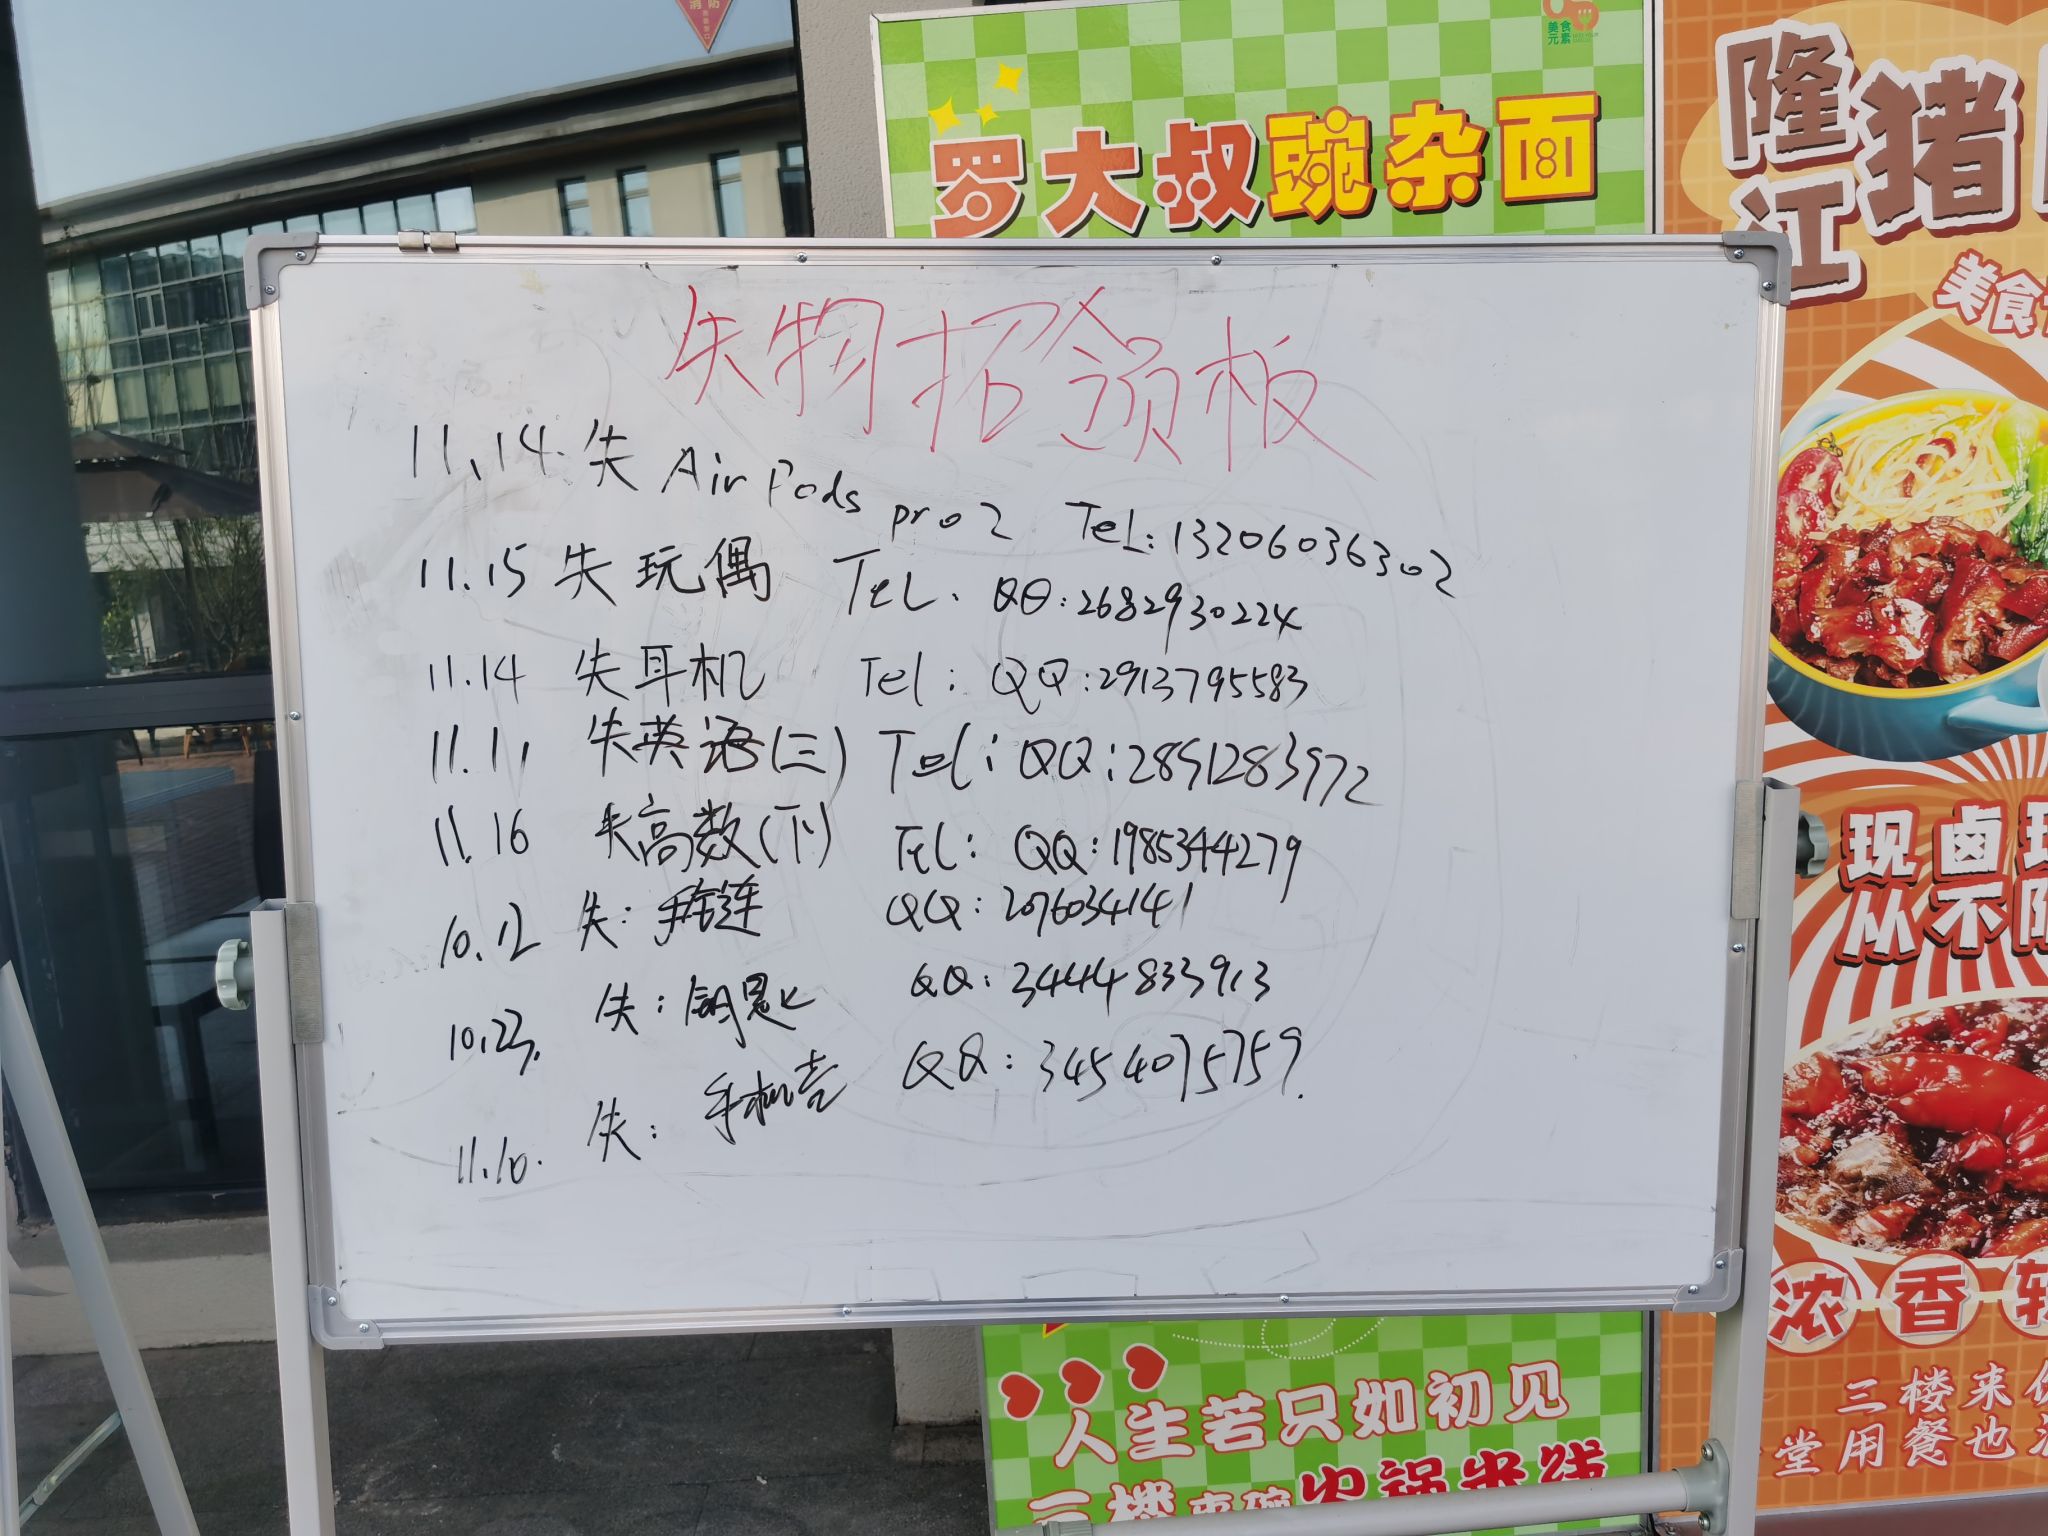 消防
美食
元素
罗大叔豌杂面
隆江猪
美食
失物招领板
11.14. 失 AirPods pro2 Tel: 13206036302
11.15 失玩偶 Tel. QQ:2682930224
11.14 失耳机 Tel: QQ:2913795583
11.11 失英语(三) Tel: QQ:2851283972
11.16 失高数(下) Tel: QQ:1985344279
10.12 失: 手链 QQ:2076034141
10.23. 失: 钥匙 QQ:3444833913
11.10. 失: 手机壳 QQ:3454075759.
现卤现
从不
浓香软
三楼来
堂用餐也
人生若只如初见
二楼来碗火锅米线